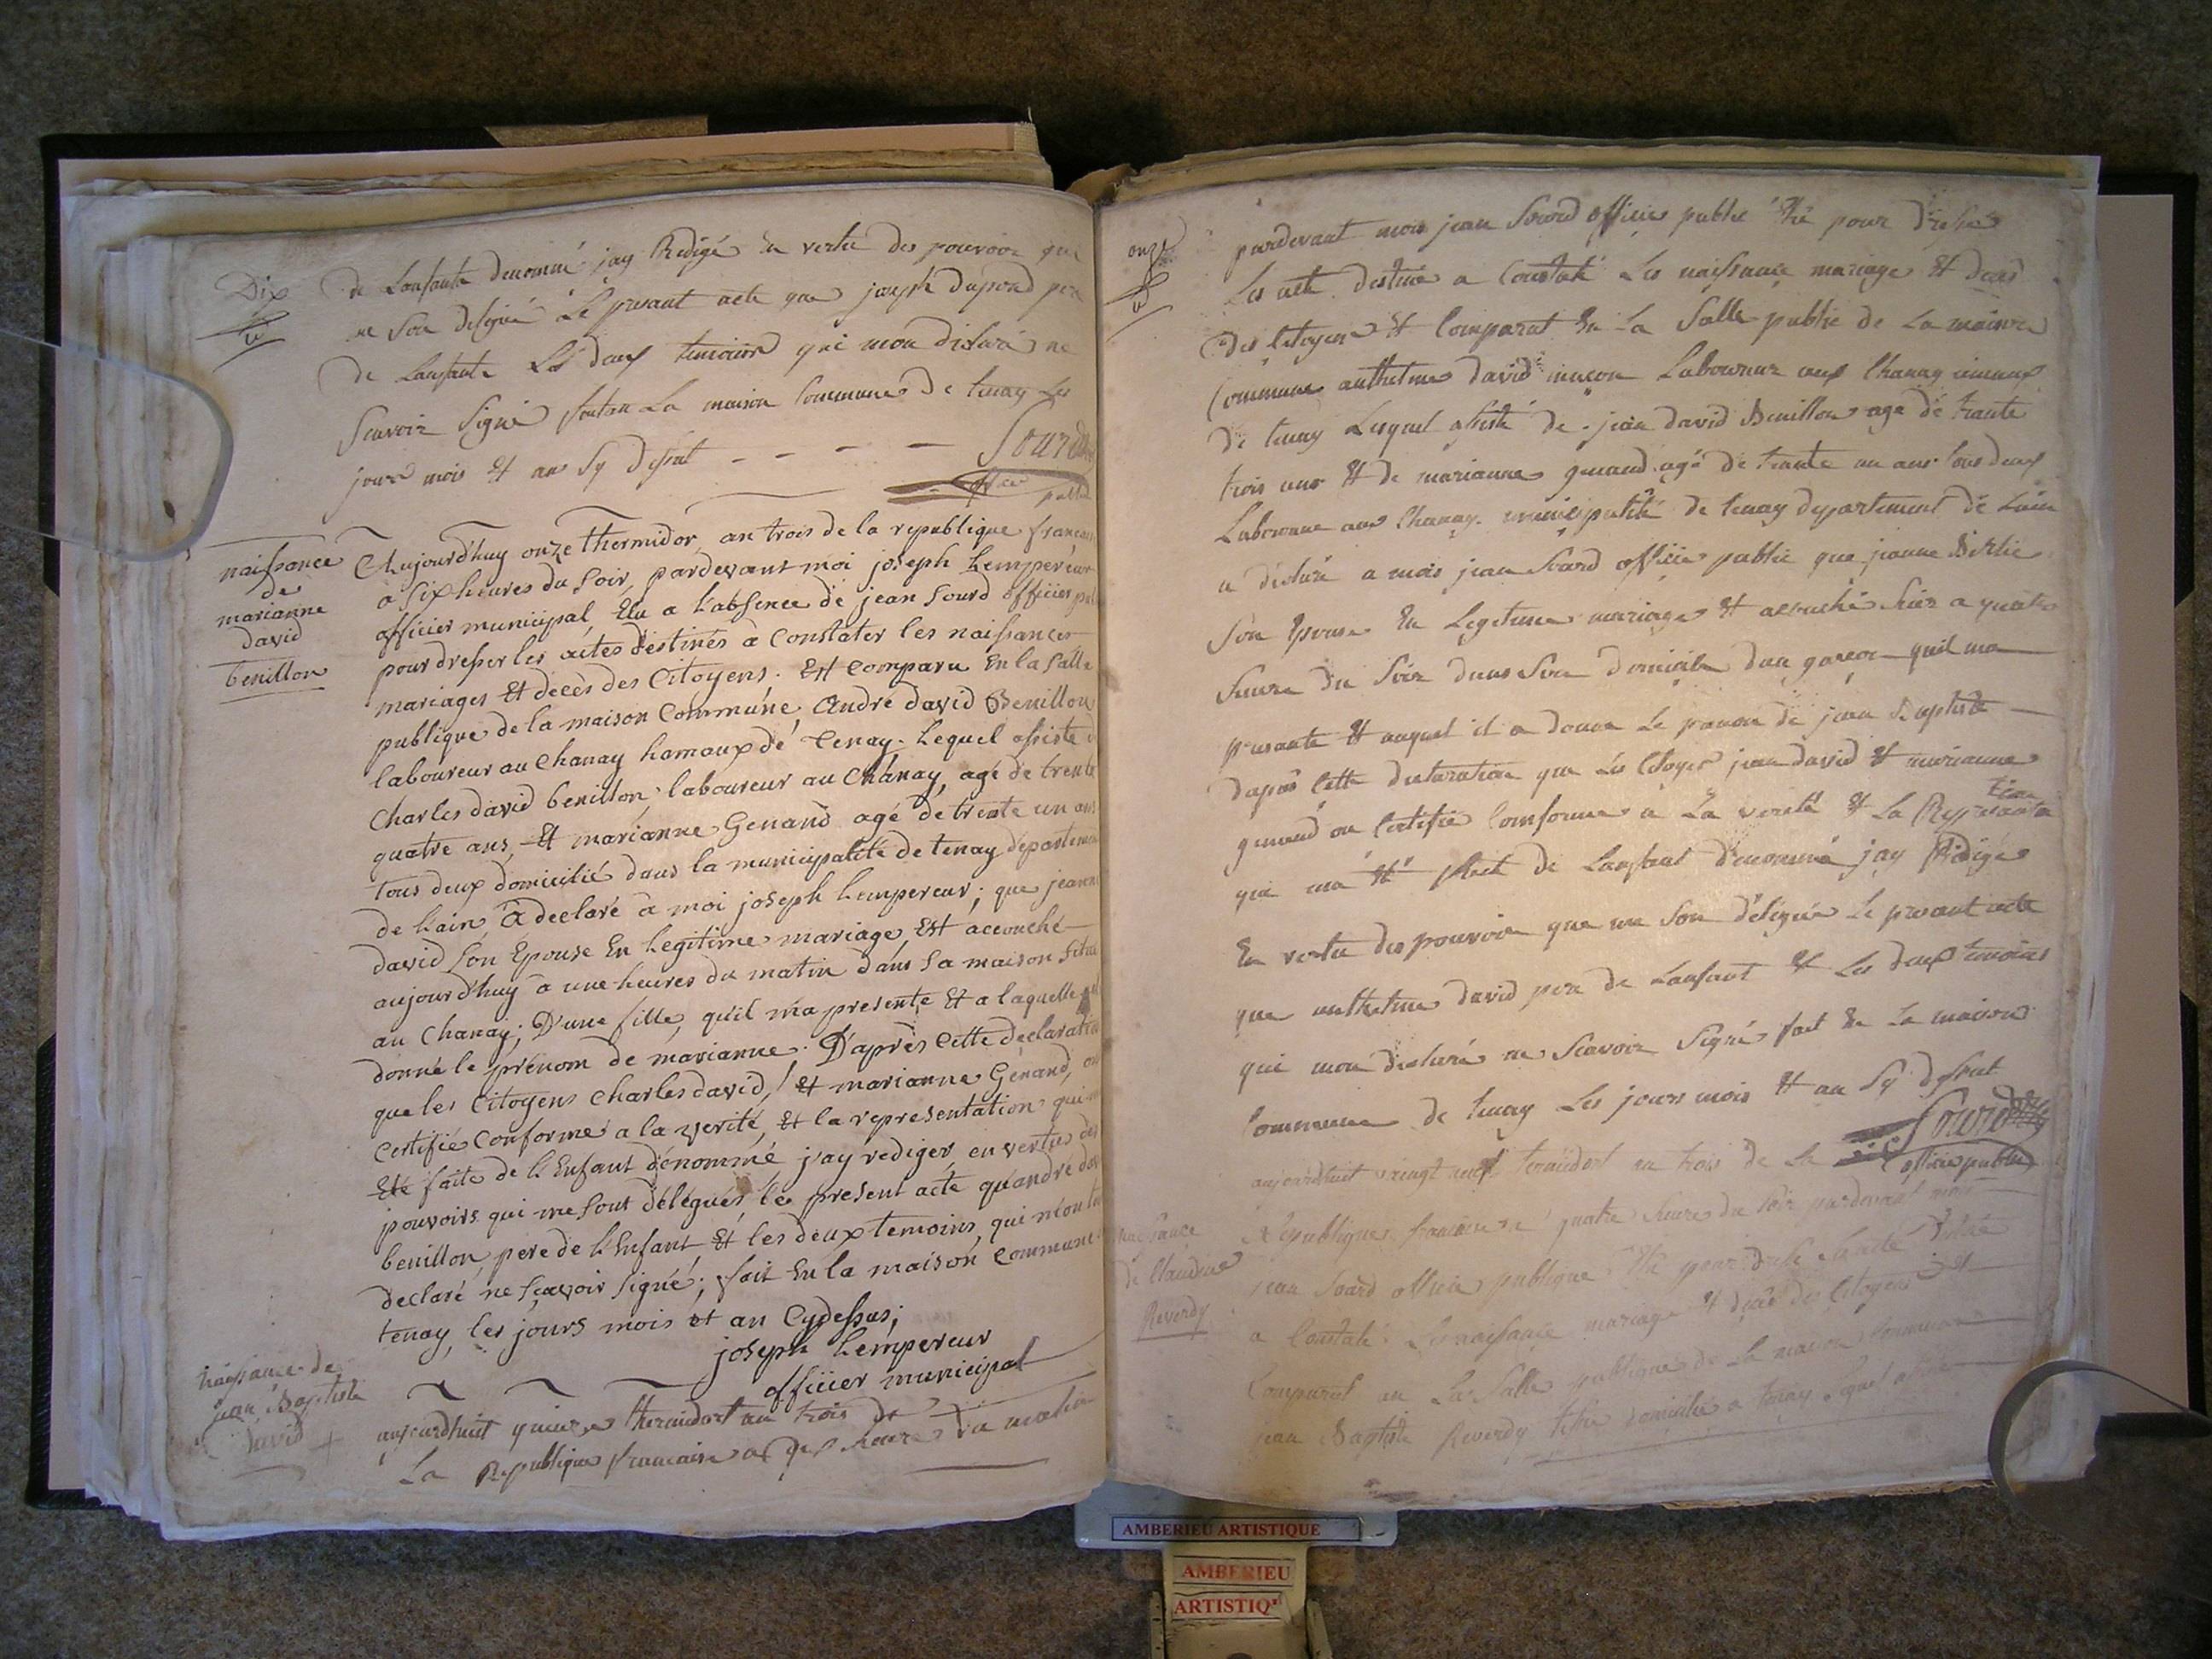 Dix
de Lanfante denommé jay Redigé En vertu des pouvoir que
me Son delégué Le presant acte que joseph dupond pere
de Lanfante Les deux temoins qui mon déclaré ne
Scavoir Signé fait en La maison Commune de tenay Les
jours mois Et an Sy dessut - - - - Sourd
offier public
naissance
de
marianne
david
benillon
Aujourd'huy onze thermidor, an trois de la republique francaise
a Six heures du Soir, pardevant moi joseph Lempereur
officier municipal, Elu a l'absence de jean Sourd officier pub
pour dresser les actes destinés a Constater les naissances
mariages Et decès des Citoyens. Est Comparu En la Salle
publique de la maison Commune, André david Benillon
laboureur au Chanay hamaux de tenay. Lequel assisté d
Charles david benillon, laboureur au Chanay, agé de trente
quatre ans, Et marianne Genand agé de trente un ans
tous deux domicilié dans la municipalité de tenay departement
de L'ain, a declaré a moi joseph Lempereur; que jeanne
david Son Epouse En Legitime mariage, Est accouché
aujourd'huy a une heures du matin dans Sa maison Situé
au Chanay; D'une fille, qu'il m'a presenté Et a laquelle il
donné le prénom de marianne. D'après Cette declaration
que les Citoyens Charles david, Et marianne Génand, on
Certifié Conforme a la verité, Et la representation qui m
Eté faite de l'Enfant dénommé j'ay rediger en vertu des
pouvoirs qui me sont délégués, le present acte qu'andré dav
benillon, pere de l'Enfant Et les deux temoins, qui m'on tu
declaré ne Sçavoir Signé; fait En la maison Commune
tenay, les jours mois et an Cydessus;
joseph Lempereur
officier municipal
naissance de
jean Baptiste
david
aujourdhuit quinze thermidort an trois de
La Republique francaise a dix heures du matin
onze
pardevant mois jean Sourd officie public Elu pour dressé
Les acte destiné a Constaté Les naissance mariage Et deces
des Citoyen Et Comparut En La Salle public de La maison
Commune anthelme david maçon Laboureur aux Chanay amaux
de tenay Lequel assisté de jean david Benillon agé de trante
trois ans Et de marianne genand agé de trante un ans tous deux
Laboureur aux Chanay municipalité de tenay departement de Lain
a déclaré a mois jean Sourd officie public que jeanne
Son Epouse En Legetime mariage Et acouché hier a quatre
heure du Soir dans Son domicile dun garçon quil ma
presante Et auquel il a donne Le prenon de jean Baptiste
dapres Cette declaration que Les Citoyen jean david Et marianne
genand on Certifie Comforme a La verité Et La Represanta
tion
qui ma Eté faict de Lanfant denommé jay Rédigé
En vertu des pouvoir que me Son délégué Le presant acte
que anthelme david pere de Lanfant Et Les deux temoins
qui mon declaré ne Scavoir Signé fait En La maison
Commune de tenay Les jours mois Et an Sy dessut
Sourd
officie public
naissance
de Claudine
Reverdy
aujourdhuit vaingt neuf termidort an trois de La
Republique francaise a quatre heure du soir pardevant mois
jean Sourd officie publique Elu pour dressé Les acte destiné
a Constaté Les naissance mariage Et deces des Citoyens Et
Comparut an La Salle publique de La maison Commune
jean Baptiste Reverdy domicilié a tenay Lequel assisté
AMBERIEU ARTISTIQUE
AMBERIEU
ARTISTIQ